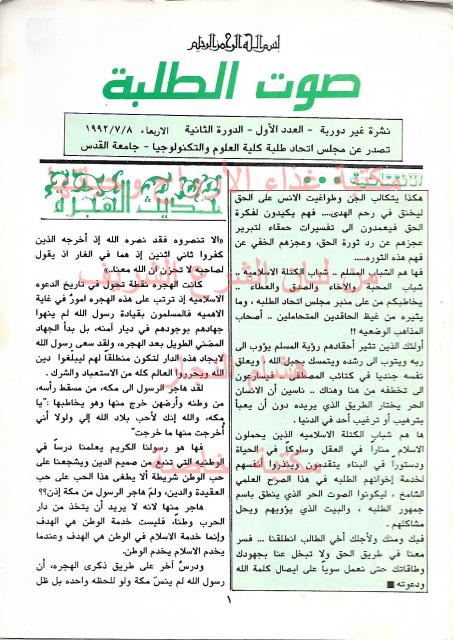 بسم الله الرحمن الرحيم
صوت الطلبة
نشرة غير دورية - العدد الأول - الدورة الثانية الاربعاء ١٩٩٢/٧/٨
تصدر عن مجلس اتحاد طلبة كلية العلوم والتكنولوجيا - جامعة القدس
الافتتاحية
هكذا يتكالب الجن وطواغيت الانس على الحق
ليخنق في رحم الهدى.... فهم يكيدون لفكرة
الحق فيعمدون الى تفسيرات حمقاء لتبرير
عجزهم عن رد ثورة الحق، وعجزهم الخفي عن
فهم هذه الثوره.....
فها هم الشباب المسلم .. شباب الكتلة الاسلامية ..
شباب المحبة والأخاء والصدق والعطاء ..
يخاطبكم من على منبر مجلس اتحاد الطلبه ، وما
يثيره من غيظ الحاقدين المتحاملين .. أصحاب
المذاهب الوضعيه !!
أولئك الذين تثير أحقادهم رؤية المسلم يؤوب الى
ربه ويتوب الى رشده ويتمسك بحبل الله ويعلق
نفسه جنديا في كتائب المصطفى .. فيسارعون
الى تخطفه من هنا وهناك .. ناسين أن الانسان
الحر يختار الطريق الذي يريده دون أن يعبأ
بترهيب أو ترغيب أحد في الدنيا .
ها هم شباب الكتلة الاسلاميه الذين يحملون
الاسلام مناراً في العقل وسلوكاً في الحياة
ودستوراً في البناء يتقدمون وينذروا أنفسهم
لخدمة إخوانهم الطلبه في هذا الصرح العلمي
الشامخ ، ليكونوا الصوت الحر الذي ينطق باسم
جمهور الطلبه ، والبيت الذي يؤويهم ويحل
مشاكلهم .
فبك ومنك ولأجلك أخي الطالب انطلقنا ... فسر
معنا في طريق الحق ولا تبخل عنا بجهودك
وطاقاتك حتى نعمل سوياً على ايصال كلمة الله
ودعوته
حديث الهجره
«الا تنصروه فقد نصره الله إذ أخرجه الذين
كفروا ثاني اثنين إذ هما في الغار اذ يقول
لصاحبه لا تحزن أن الله معنا..»
كانت الهجره نقطة تحول في تاريخ الدعوه
الاسلاميه إذ ترتب على هذه الهجره امورٌ في غاية
الاهميه فالمسلمون بقيادة رسول الله لم ينهوا
جهادهم بوجودهم في ديار آمنه، بل بدأ الجهاد
المضني الطويل بعد الهجره، ولقد سعى رسول الله
لايجاد هذه الدار لتكون منطلقا لهم ليبلغوا دين
الله ويحرروا العالم كله من الاستعباد والشرك .
لقد هاجر الرسول الى مكه، من مسقط رأسه،
من وطنه وأرضهن خرج منها وهو يخاطبها : "يا
مكه، والله إنك لأحب بلاد الله إلي ولولا أني
أُخرجت منها ما خرجت"
فها هو رسولنا الكريم يعلمنا درساً في
الوطنيه التي تنبع من صميم الدين ويشجعنا على
حب الوطن شريطة ألا يطغى هذا الحب على حب
العقيدة والدين، ولمَ هاجر الرسول من مكة إذن؟؟
هاجر منها لانه لا يريد أن يتخذ من دار
الحرب وطناً، فليست خدمة الوطن هي الهدف
وإنما خدمة الاسلام في الوطن هي الهدف وعندما
يخدم الاسلام يخدم الوطن.
ودرسٌ آخر على طريق ذكرى الهجره، أن
رسول الله لم ينس مكة ولو للحظه واحده بل ظل
١
مكتبة غذاء الأرواح
من لبنان الشريف
هشام النجار
مكتبة خاصة